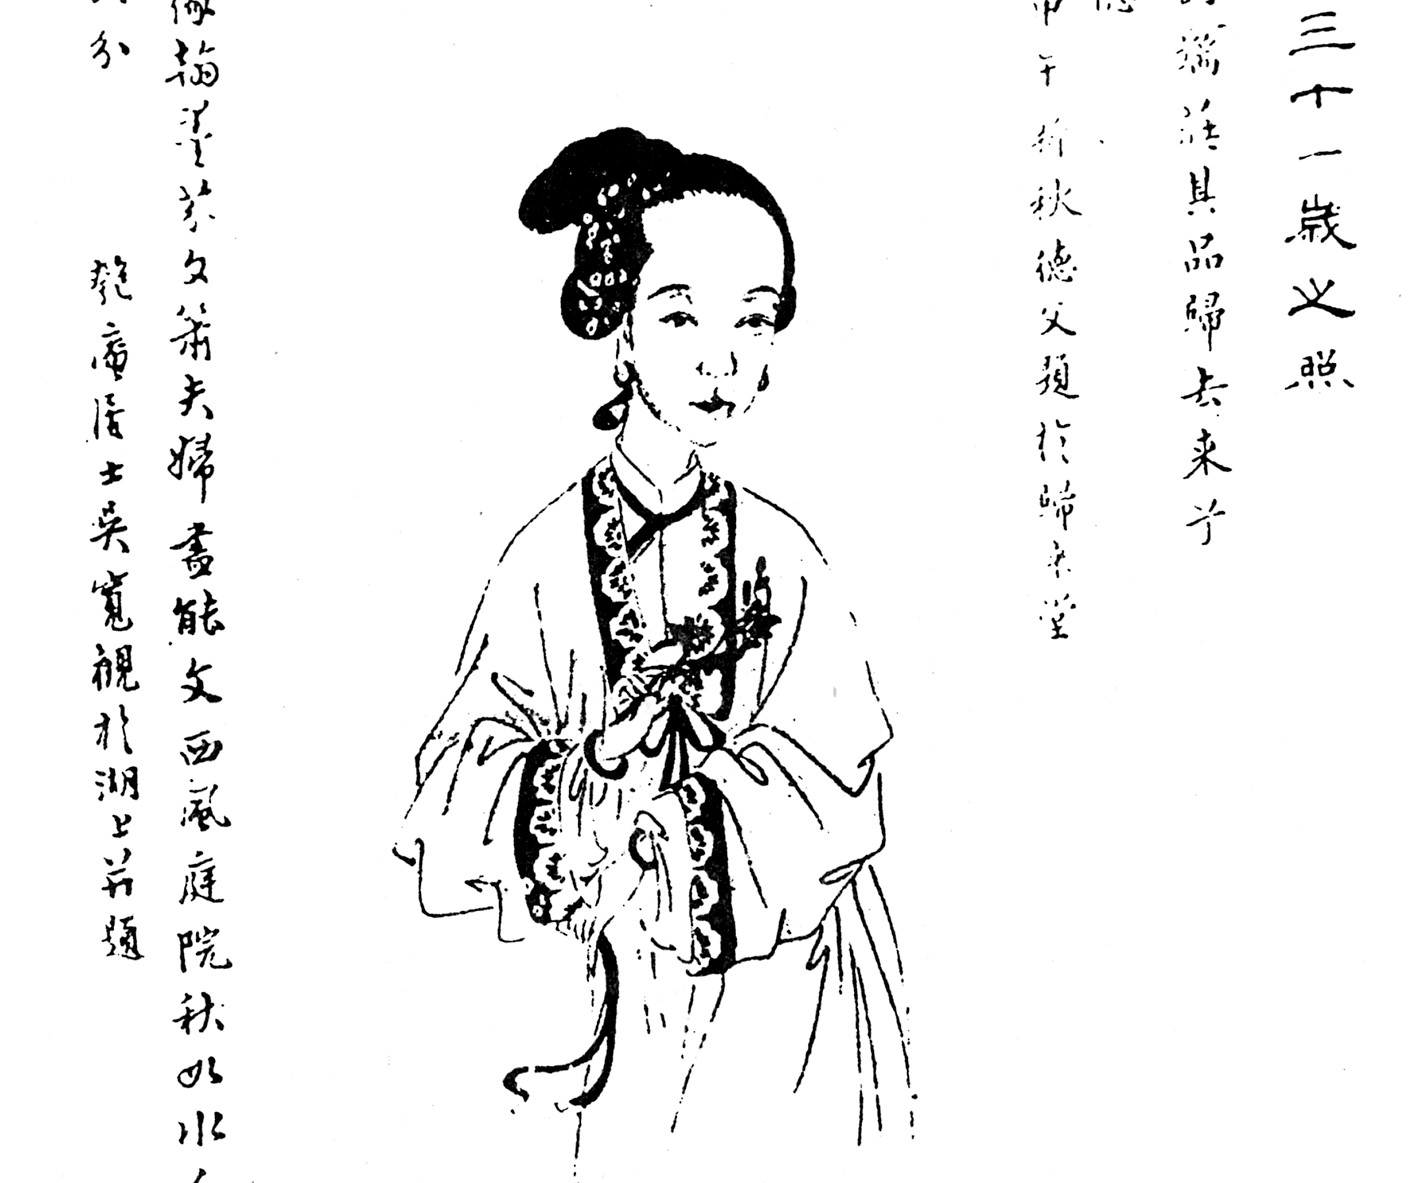 三十一歳之照
端莊其品歸去来兮
午新秋德父題於歸来堂
翰墨家文箫夫婦盡能文西風庭院秋如水
匏庵居士吳寬觀於湖上并題